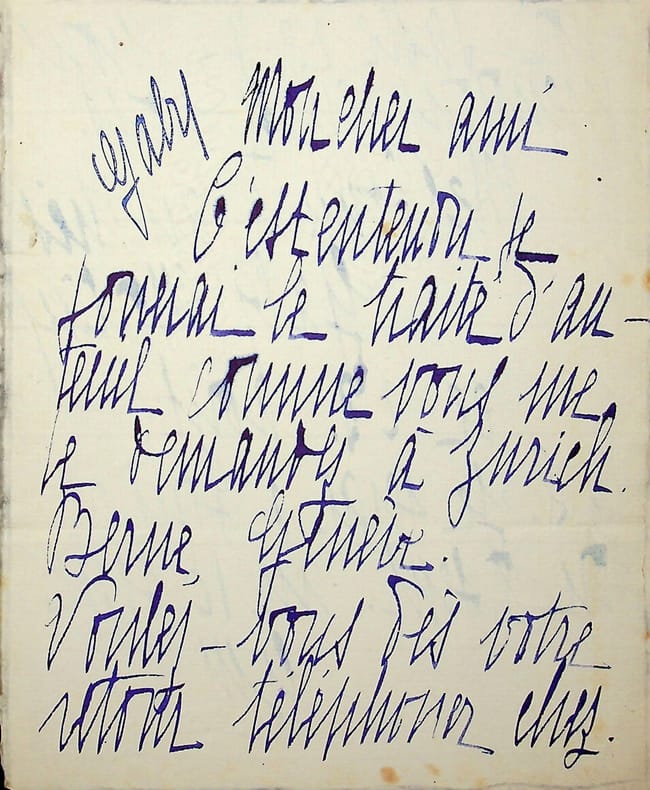 Gaby
Mon cher ami
C'est entendu je
jouerai le traité d'au-
teuil comme vous me
le demandez à Zurich.
Berne, Genève.
Voulez-vous dès votre
retour téléphoner chez.